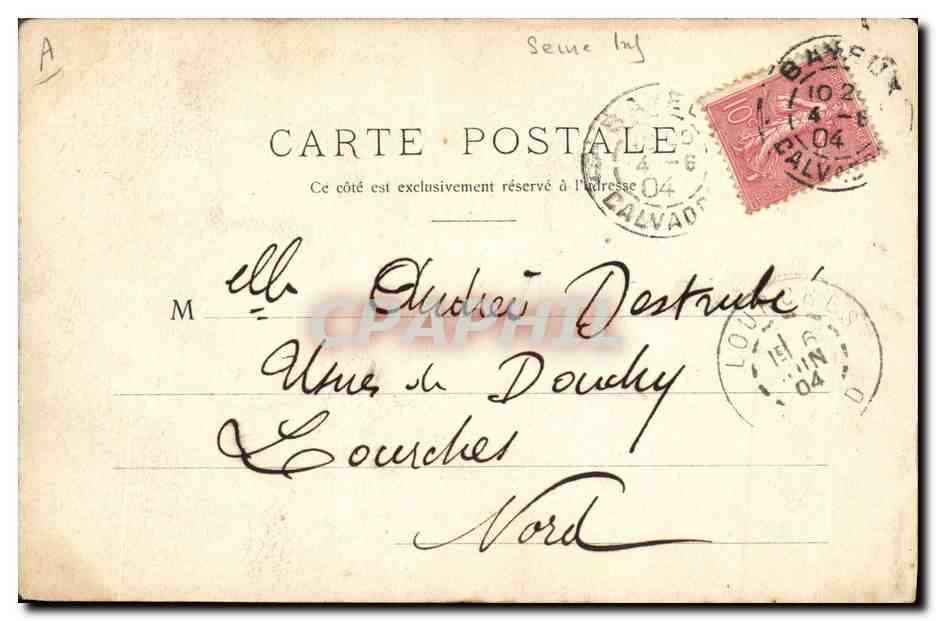 A
Seine Inf
CARTE POSTALE
Ce côté est exclusivement réservé à l'adresse
BAYEUX
4 - 6
04
CALVADOS
10
BAYEUX
10
4 - 6
04
CALVADOS
Melle Andrée Destrubé
CPAPHIL
Usines de Douchy
Lourches
Nord
LOURCHES
6
JUIN
04